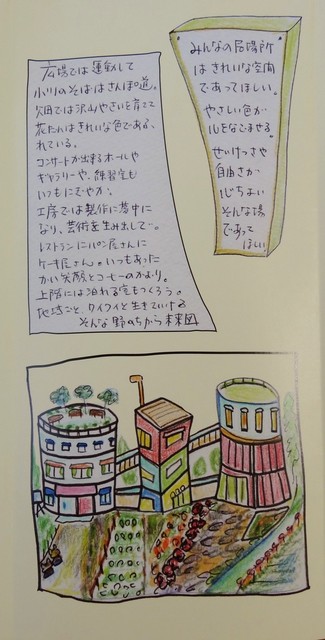 広場では運動して
小川のそばはさんぽ道。
畑では沢山やさいを育てて
花だんはきれいな色であふ
れている。
コンサートが出来るホールや
ギャラリーや、練習室も
いつもにぎやか。
工房では製作に夢中に
なり、芸術を生み出して…。
レストランにパン屋さんに
ケーキ屋さん。いつもあった
かい笑顔とコーヒーのかおり。
上階には泊れる室もつくろう。
地域ごと、ワイワイと生きていける
そんな野のちから未来図
みんなの居場所
はきれいな空間
であってほしい。
やさしい色が
心をなごませる。
せいけつさや
自由さが
心ちよい
そんな場
であって
ほしい